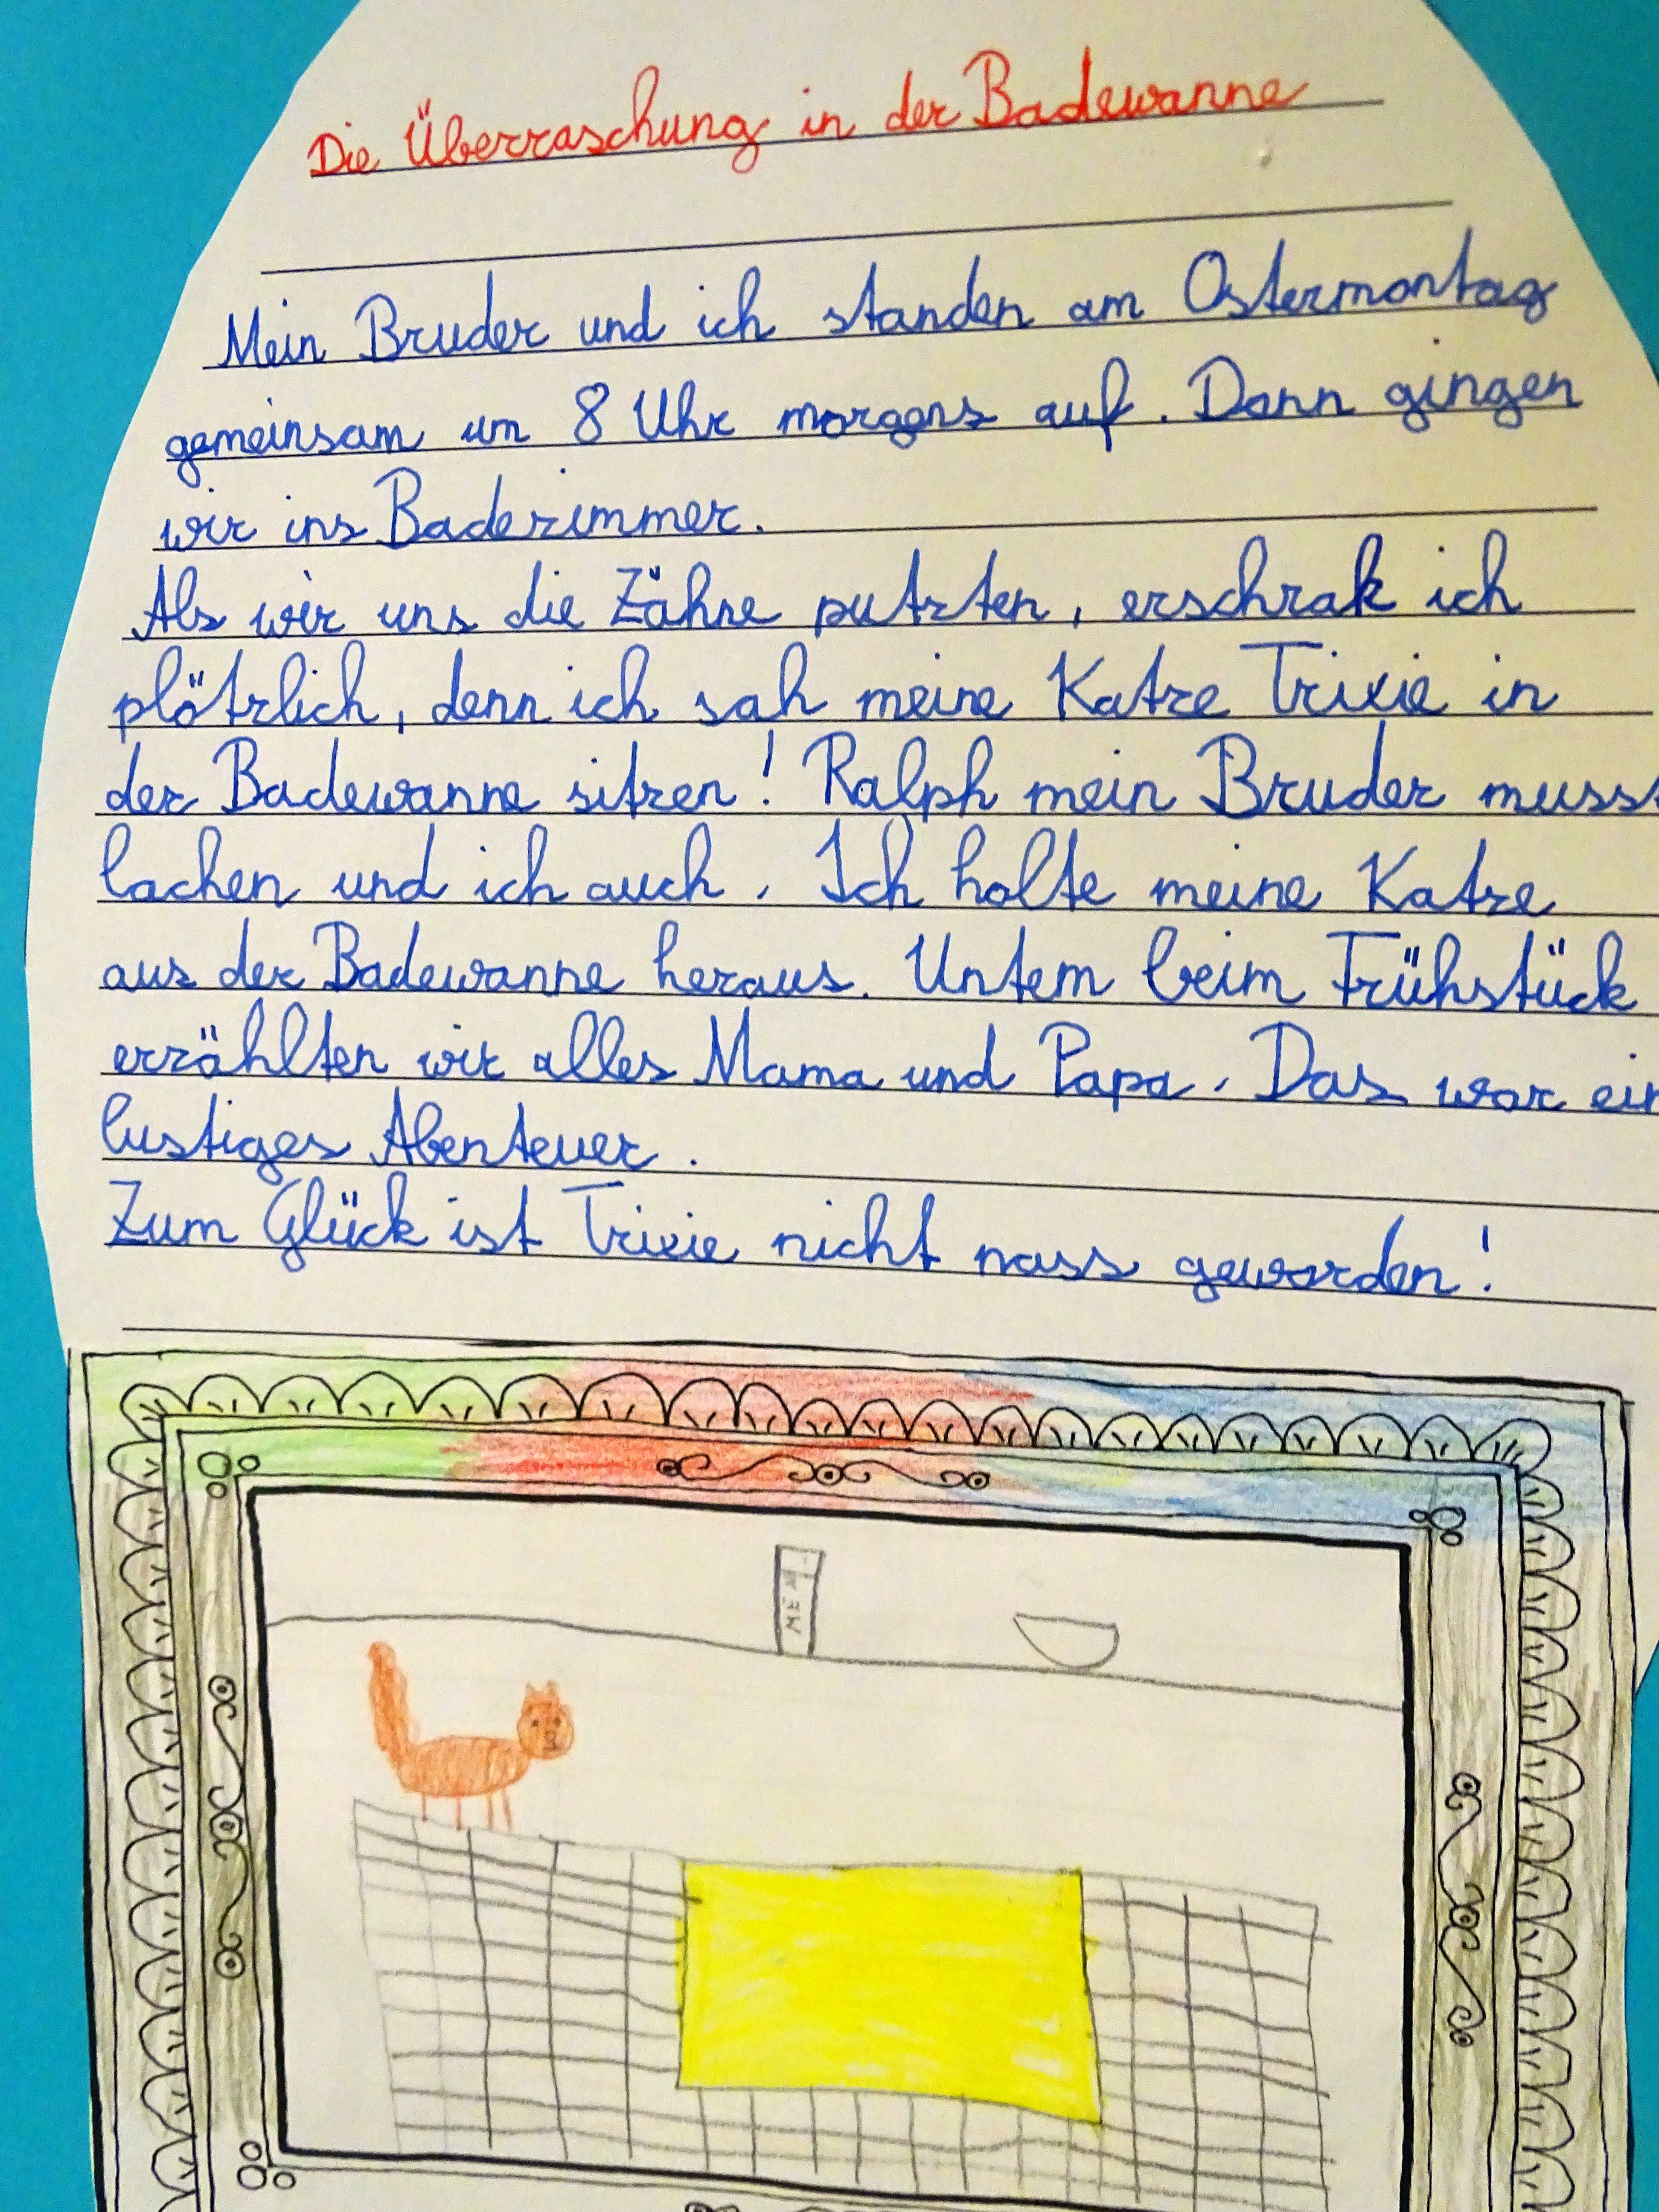 Die Überraschung in der Badewanne
Mein Bruder und ich standen am Ostermontag
gemeinsam um 8 Uhr morgens auf. Dann gingen
wir ins Badezimmer.
Als wir uns die Zähne putzten, erschrak ich
plötzlich, denn ich sah meine Katze Trixie in
der Badewanne sitzen! Ralph mein Bruder musst
lachen und ich auch. Ich holte meine Katze
aus der Badewanne heraus. Untem beim Frühstück
erzählten wir alles Mama und Papa. Das war ein
lustiges Abenteuer.
Zum Glück ist Trixie nicht nass geworden!